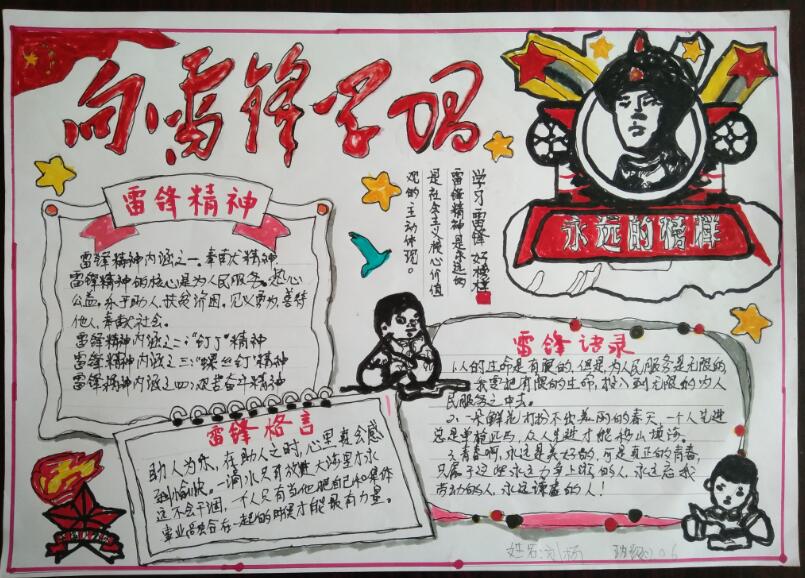 向雷锋学习
雷锋精神
雷锋精神内涵之一：奉献精神
雷锋精神的核心是为人民服务。热心
公益，乐于助人，扶贫济困，见义勇为，善待
他人，奉献社会。
雷锋精神内涵之二："钉子"精神
雷锋精神内涵之三："螺丝钉"精神
雷锋精神内涵之四：艰苦奋斗精神
学习雷锋好榜样
雷锋精神是永远的
是社会主义核心价值
观的生动体现。
永远的榜样
雷锋格言
助人为乐，在助人之时，心里真会感
到愉快。一滴水只有放进大海里才永
远不会干涸，一个人只有当他把自己和集体
事业融合在一起的时候才能最有力量。
雷锋语录
1.人的生命是有限的，但是，为人民服务是无限的，
我要把有限的生命，投入到无限的为人
民服务之中去。
2.一朵鲜花打扮不出美丽的春天，一个人先进
总是单枪匹马，众人先进才能移山填海。
3.青春啊，永远是美好的，可是真正的青春，
只属于这些永远力争上游的人，永远忘我
劳动的人，永远谦虚的人！
姓名：刘杨